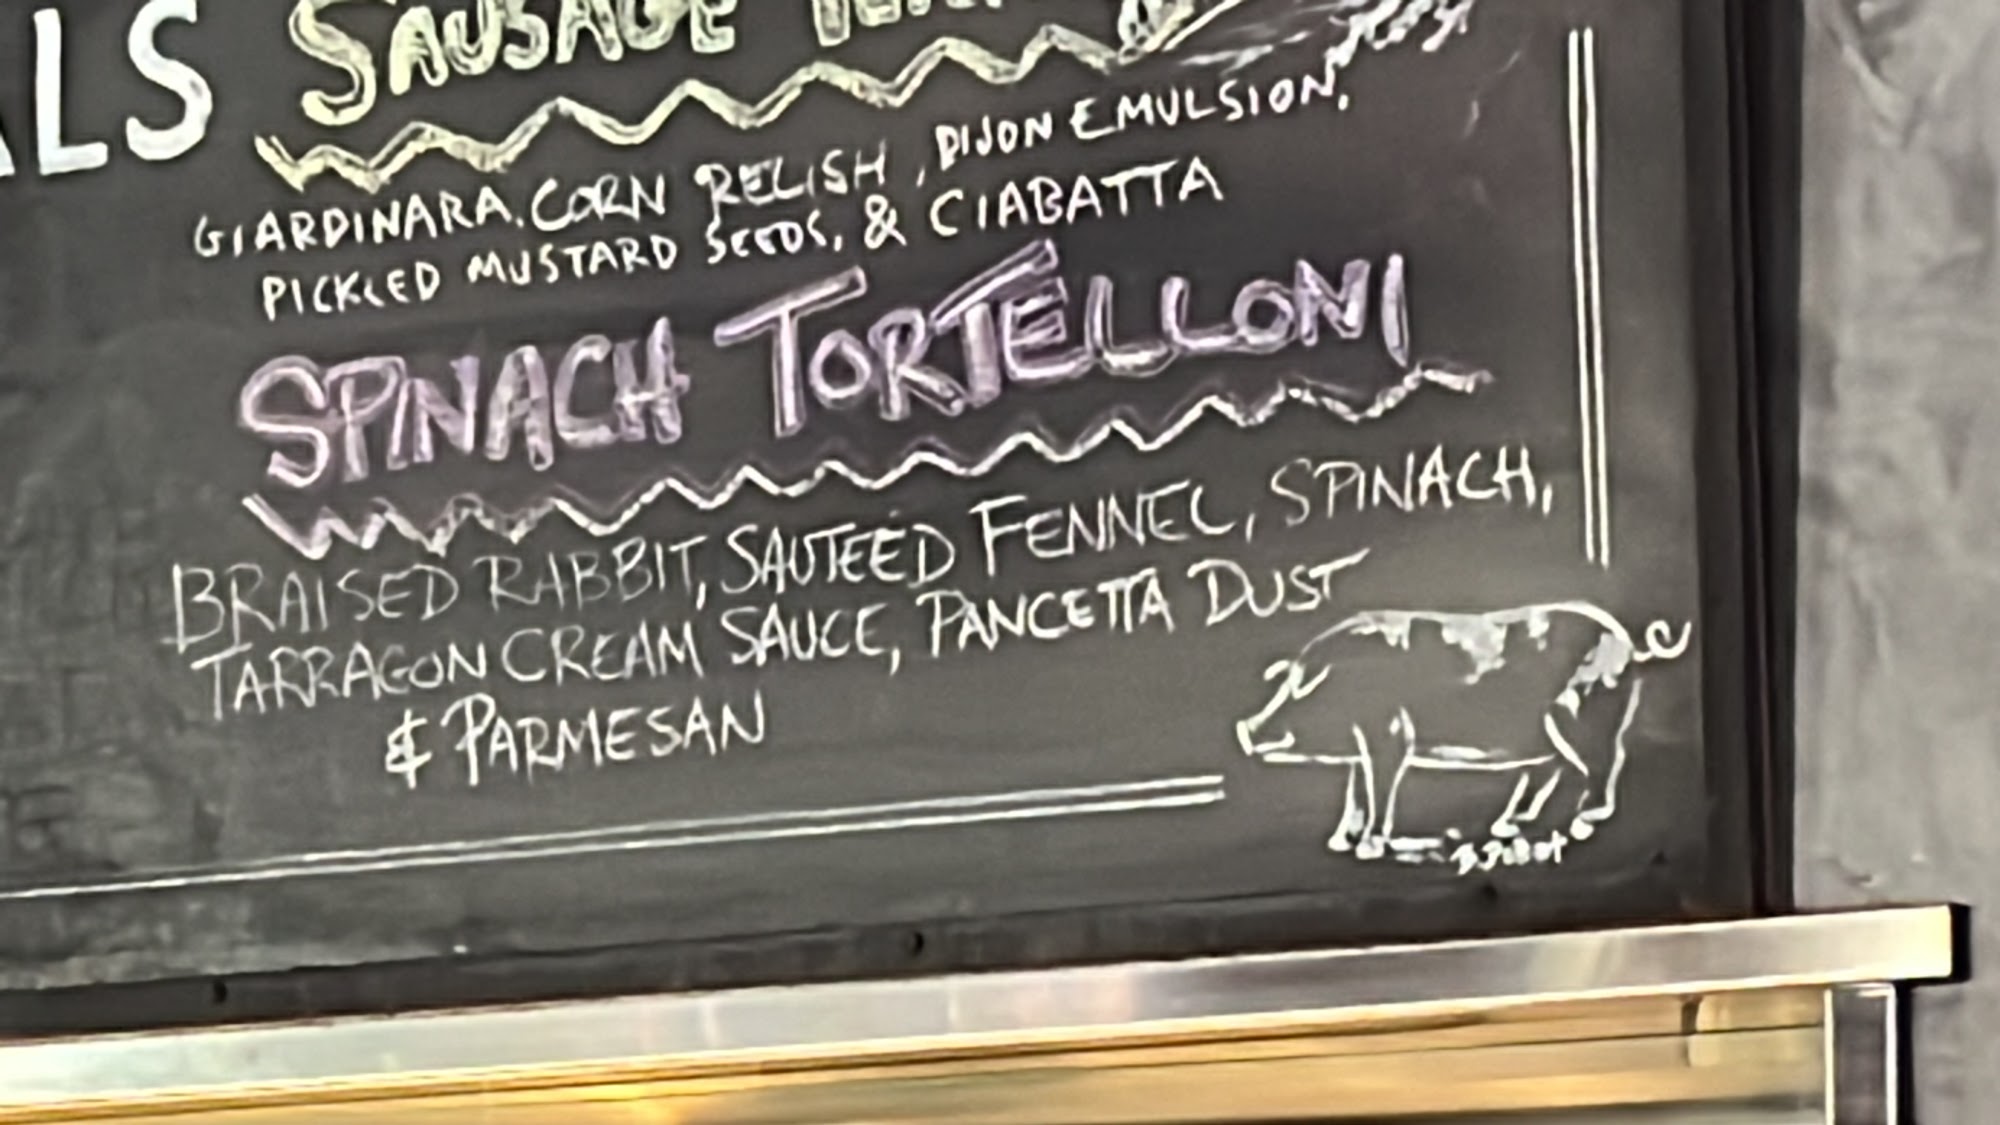 ALS SAUSAGE
GIARDINARA, CORN RELISH, DIJON EMULSION,
PICKLED MUSTARD SEEDS, & CIABATTA
SPINACH TORTELLONI
BRAISED RABBIT, SAUTEED FENNEL, SPINACH,
TARRAGON CREAM SAUCE, PANCETTA DUST
& PARMESAN